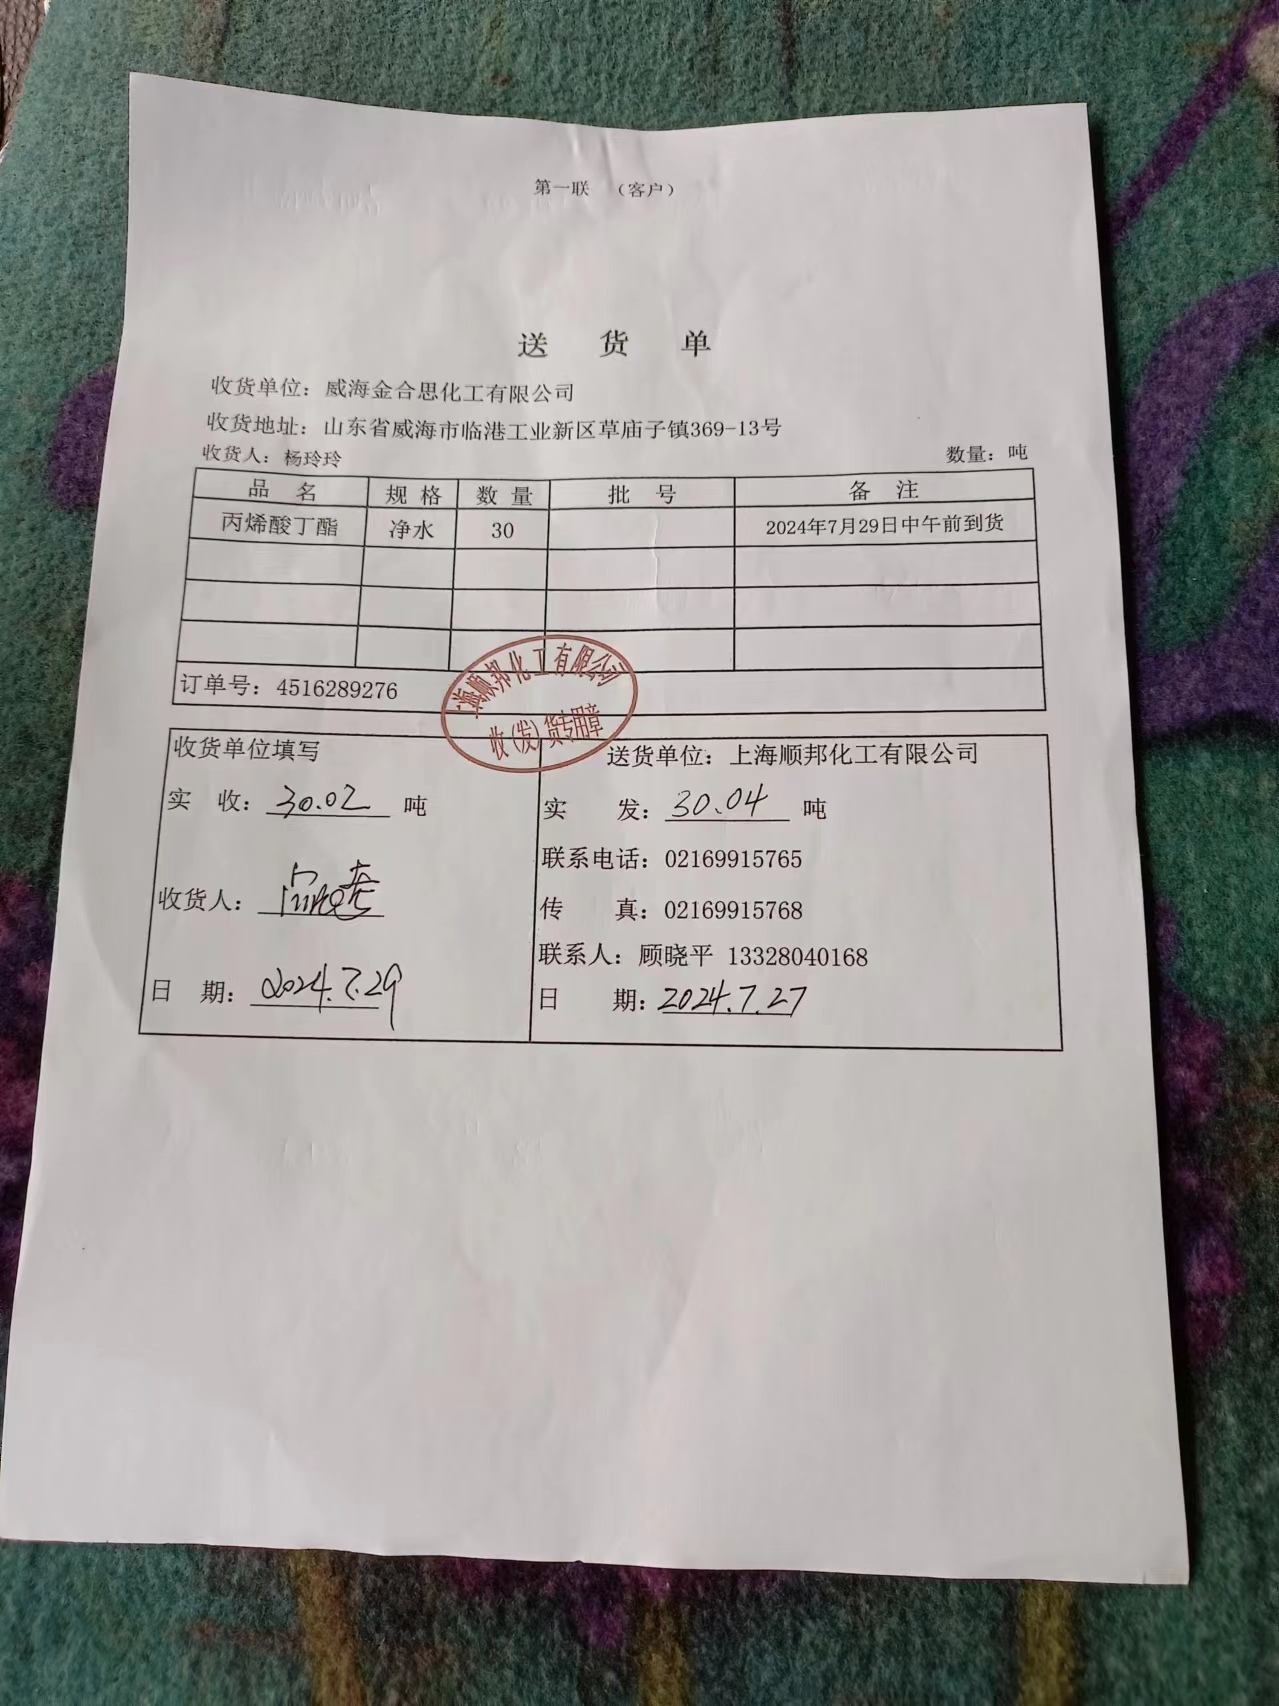 第一联 （客户）
送 货 单
收货单位：威海金合思化工有限公司
收货地址：山东省威海市临港工业新区草庙子镇369-13号
收货人：杨玲玲 数量：吨
品 名 规 格 数 量 批 号 备 注
丙烯酸丁酯 净水 30 2024年7月29日中午前到货
订单号：4516289276
上海顺邦化工有限公司
收（发）货专用章
收货单位填写
实 收：30.02 吨
收货人：
日 期：2024.7.29
送货单位：上海顺邦化工有限公司
实 发：30.04 吨
联系电话：02169915765
传 真：02169915768
联系人：顾晓平 13328040168
日 期：2024.7.27